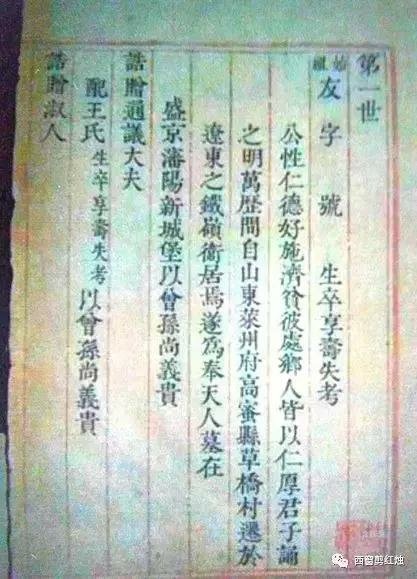 第一世
始祖友字 號 生卒享壽失考
公性仁德好施濟貧彼處鄉人皆以仁厚君子誦
之明萬歷間自山東萊州府高密縣草橋村遷於
遼東之鐵嶺衛居焉遂為奉天人墓在
盛京瀋陽新城堡以曾孫尚義貴
誥贈通議大夫
配王氏生卒享壽失考以曾孫尚義貴
誥贈淑人
西窗剪红烛